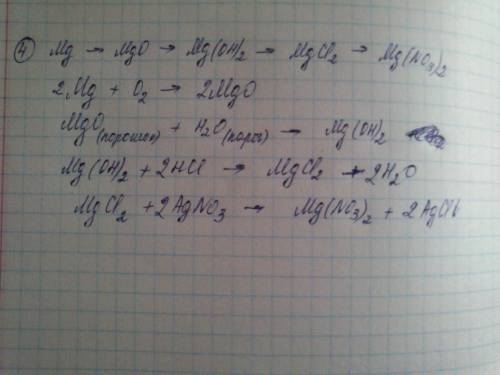 ④ Mg → MgO → Mg(OH)₂ → MgCl₂ → Mg(NO₃)₂
2Mg + O₂ → 2MgO
MgO(порошок) + H₂O(пары) → Mg(OH)₂
Mg(OH)₂ + 2HCl → MgCl₂ + 2H₂O
MgCl₂ + 2AgNO₃ → Mg(NO₃)₂ + 2AgCl↓